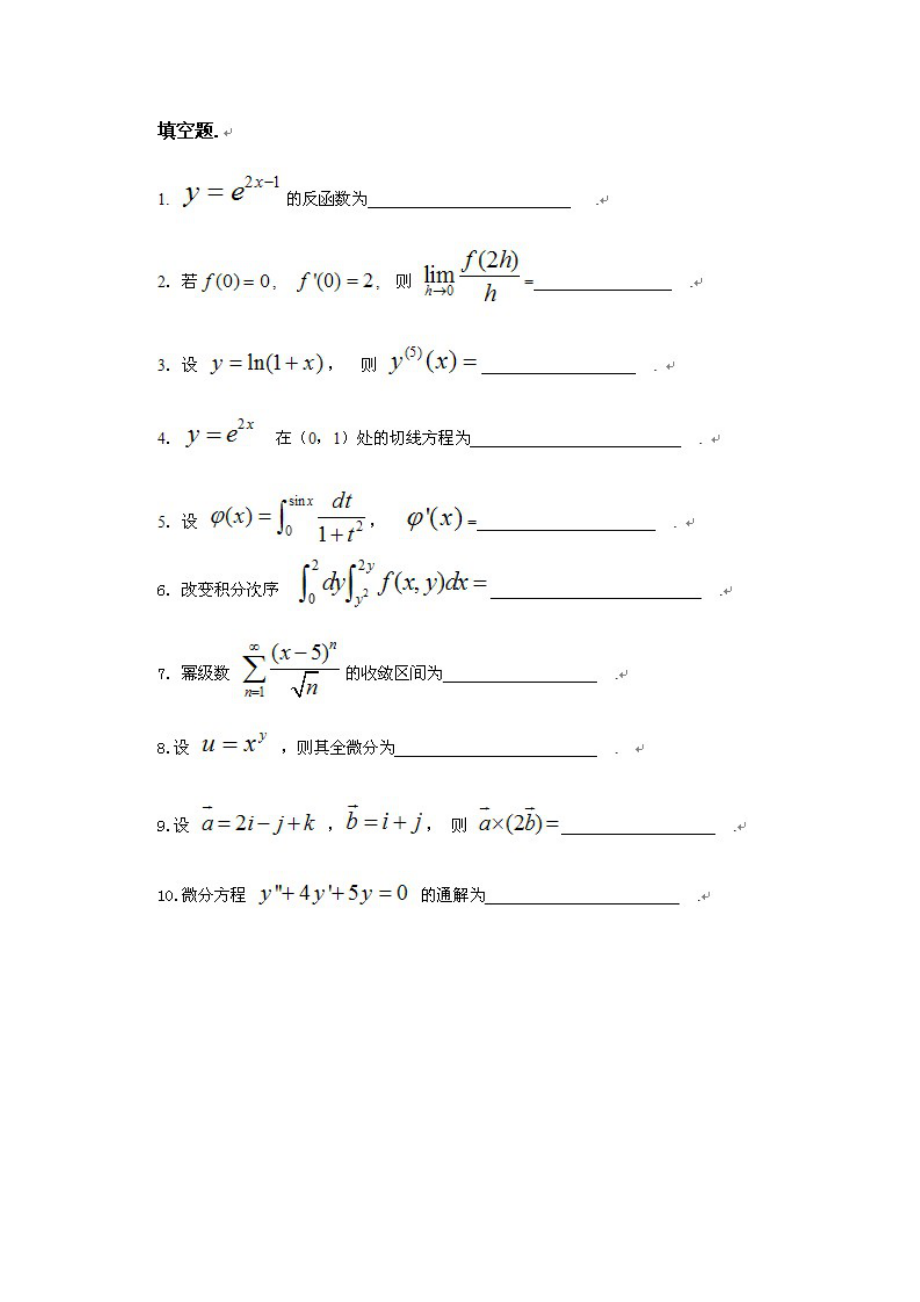 填空题.↵
1. y = e^{2x−1} 的反函数为____________________ .↵
2. 若 f(0) = 0, f'(0) = 2, 则 lim_{h→0} f(2h)/h =______________ .↵
3. 设 y = ln(1+x), 则 y^{(5)}(x) =________________ . ↵
4. y = e^{2x} 在（0，1）处的切线方程为_____________________ . ↵
5. 设 φ(x) = ∫_0^{sin x} dt/(1+t^2), φ'(x) =__________________ . ↵
6. 改变积分次序 ∫_0^2 dy∫_{y^2}^{2y} f(x, y)dx =_____________________ .↵
7. 幂级数 ∑_{n=1}^∞ (x−5)^n/√n 的收敛区间为________________ .↵
8.设 u = x^y ，则其全微分为____________________ . ↵
9.设 a⃗ = 2i − j + k ，b⃗ = i + j， 则 a⃗×(2b⃗) =________________ .↵
10.微分方程 y''+ 4y'+ 5y = 0 的通解为____________________ .↵